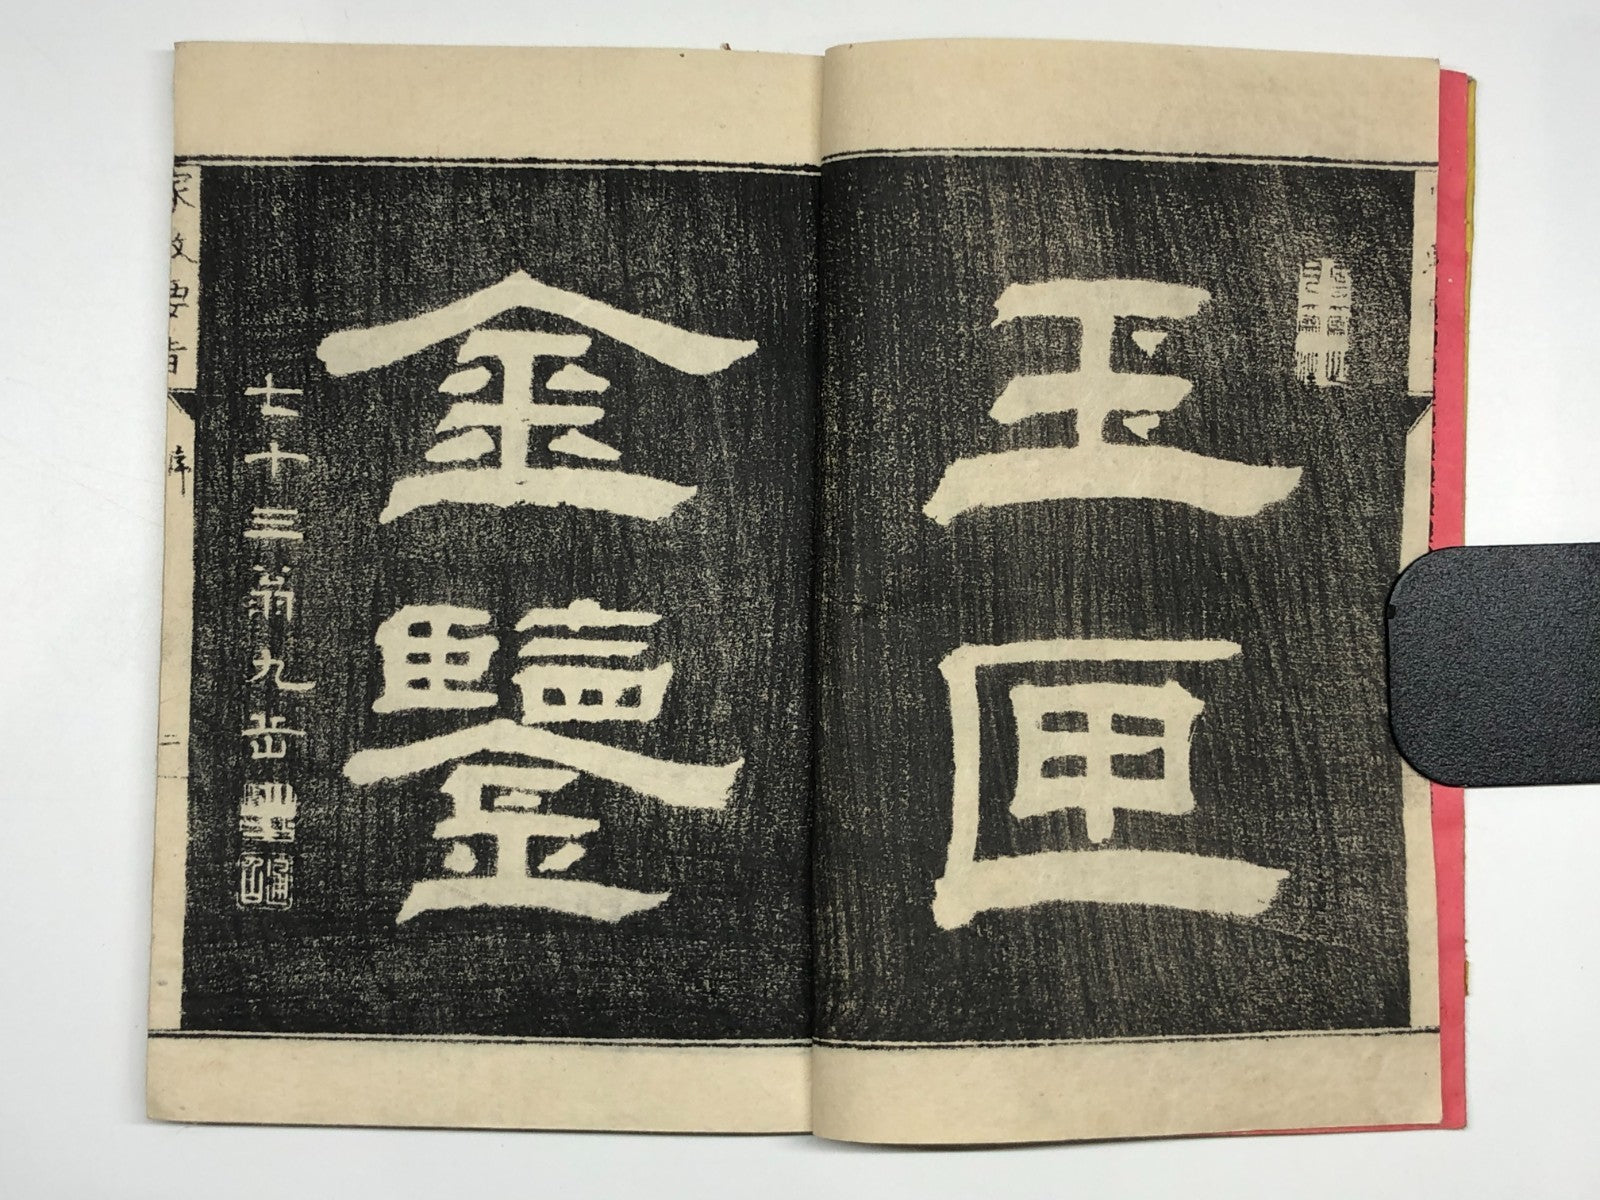 玉匣
金鑒
七十三翁九岳
家教要旨
序
二